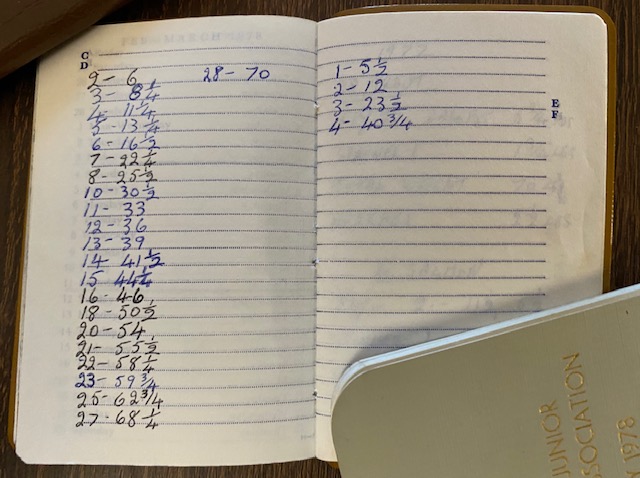 C
D
2 - 6
3 - 8 1/4
4 - 11 1/4
5 - 13 1/4
6 - 16 1/2
7 - 22 1/4
8 - 25 1/2
10 - 30 1/2
11 - 33
12 - 36
13 - 39
14 41 1/2
15 44 1/4
16 - 46
18 - 50 1/2
20 - 54
21 - 55 1/2
22 - 58 1/4
23 - 59 3/4
25 - 62 3/4
27 - 68 1/4
28 - 70
1 - 5 1/2
2 - 12
3 - 23 1/2
4 - 40 3/4
E
F
JUNIOR
SOCIATION
Y 1978